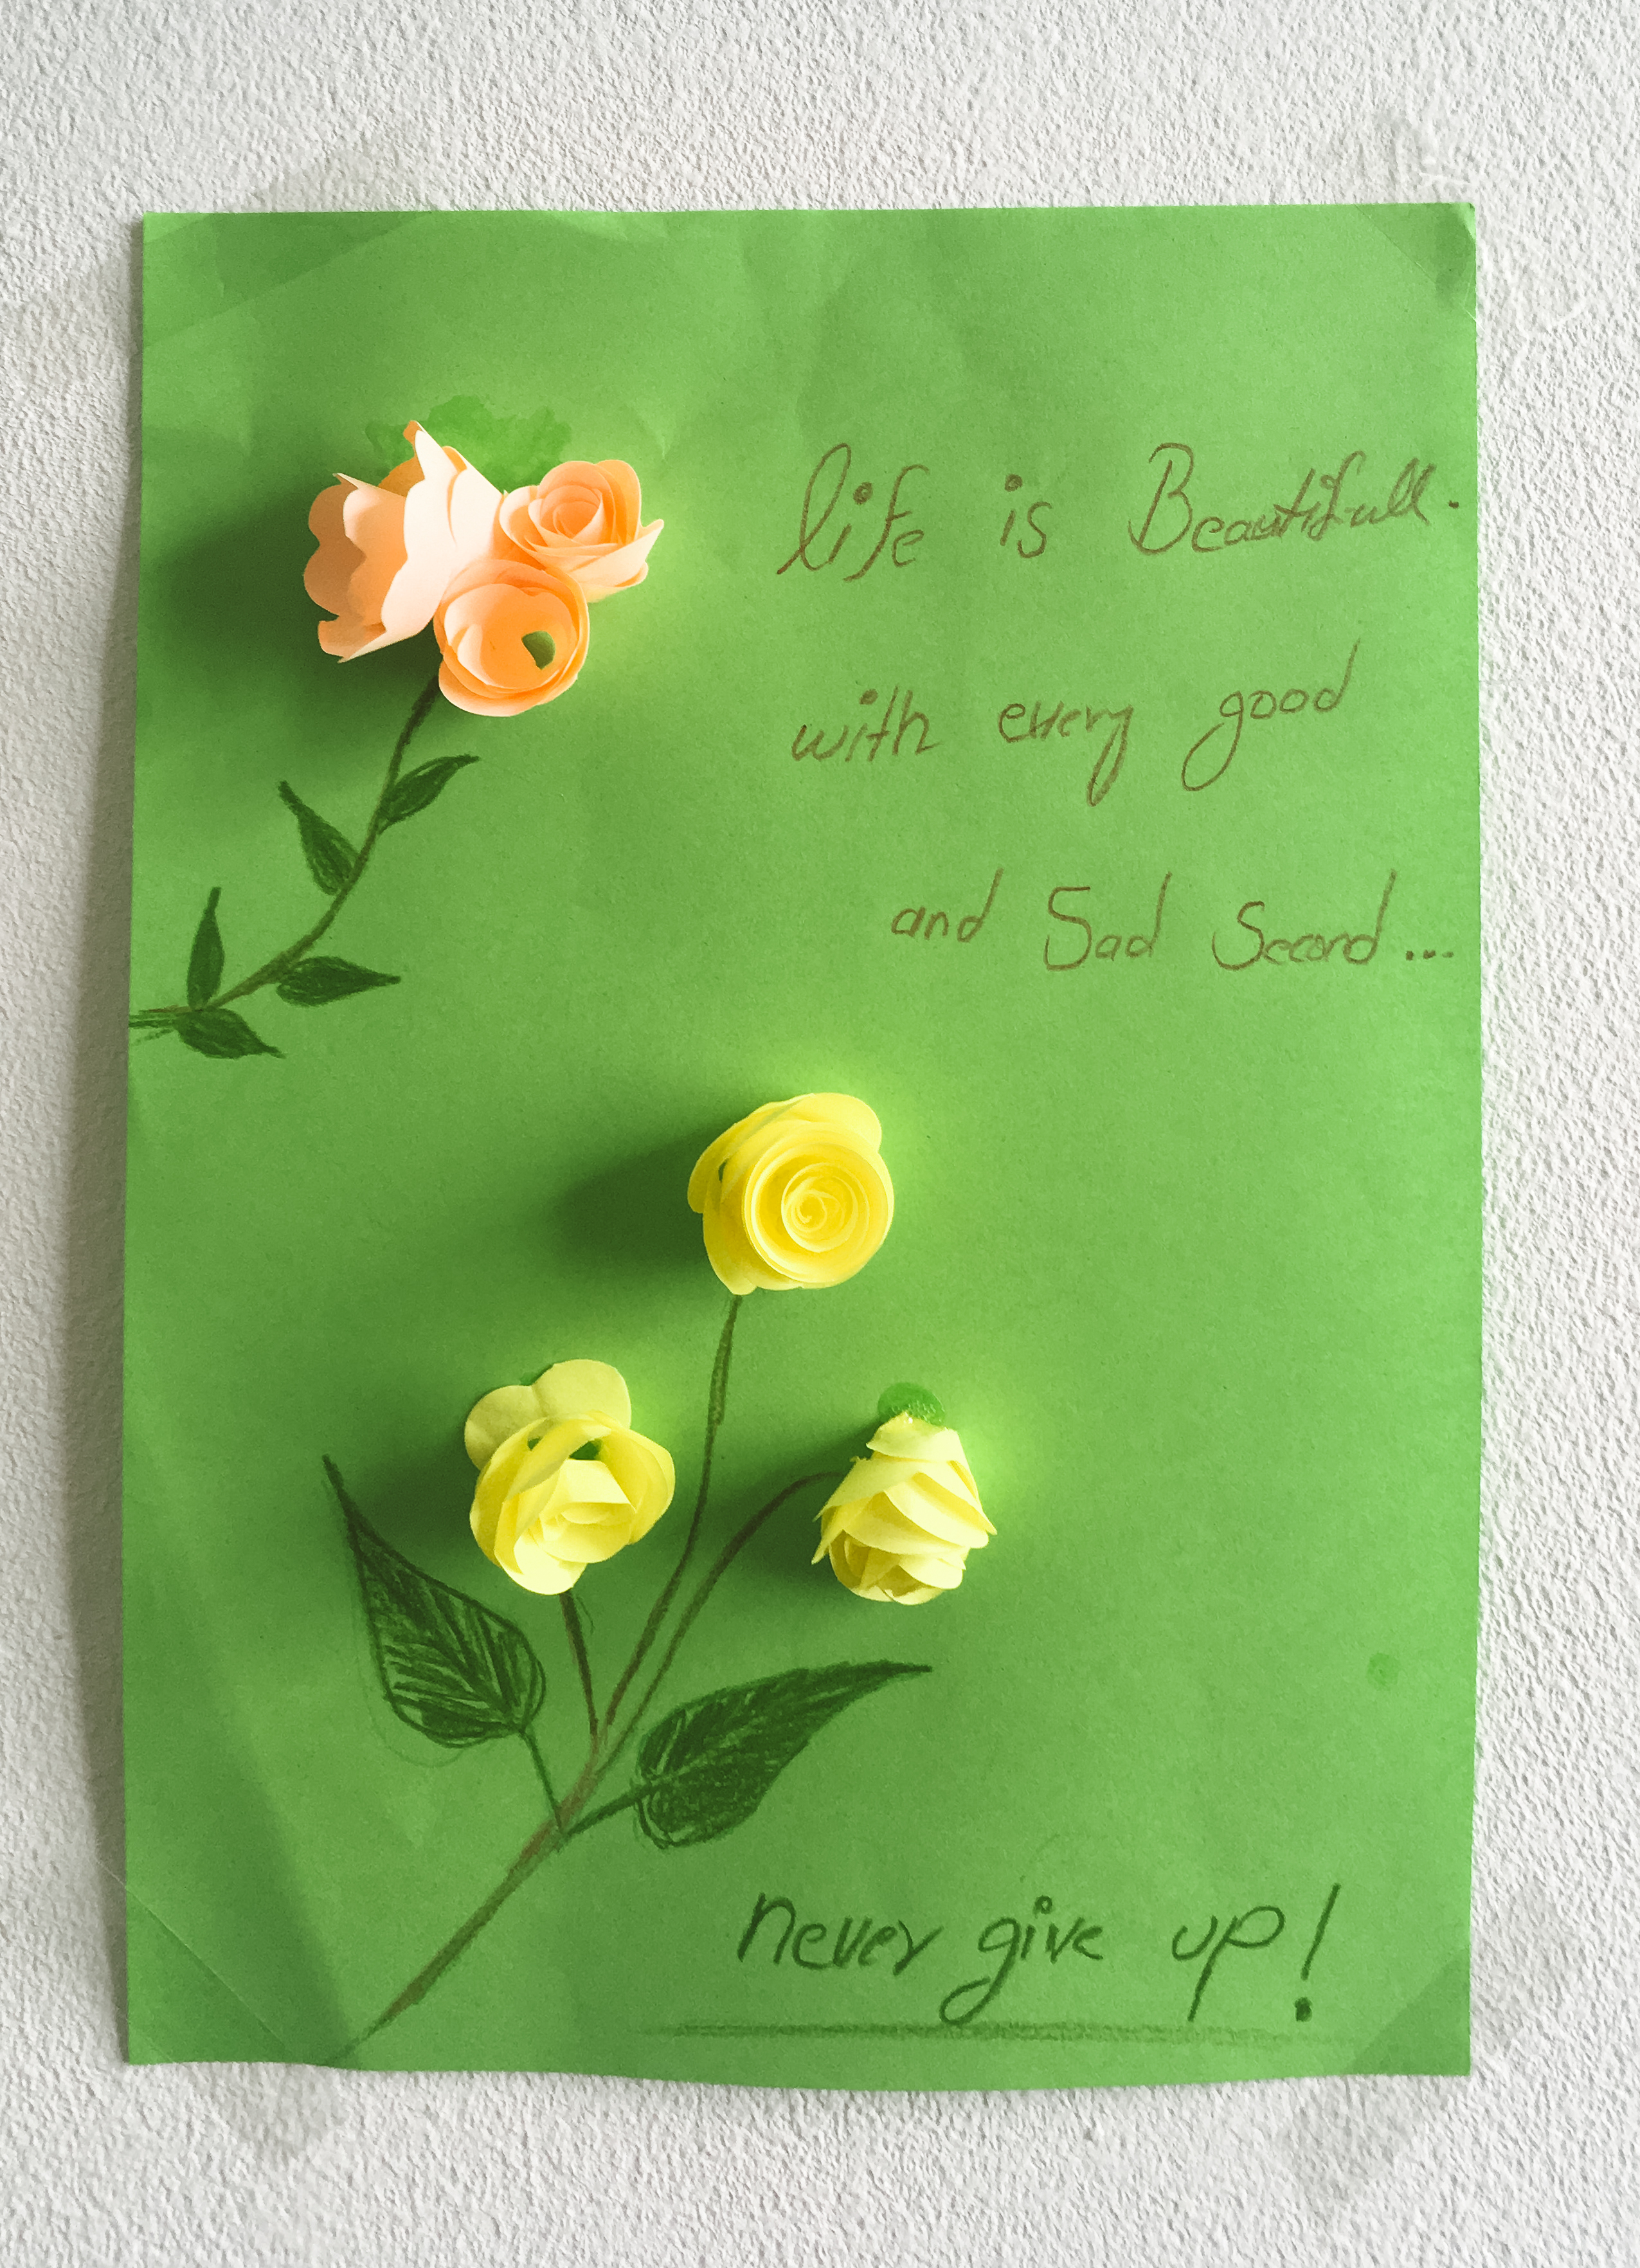 life is Beautifull.
with every good
and Sad Second...
never give up!